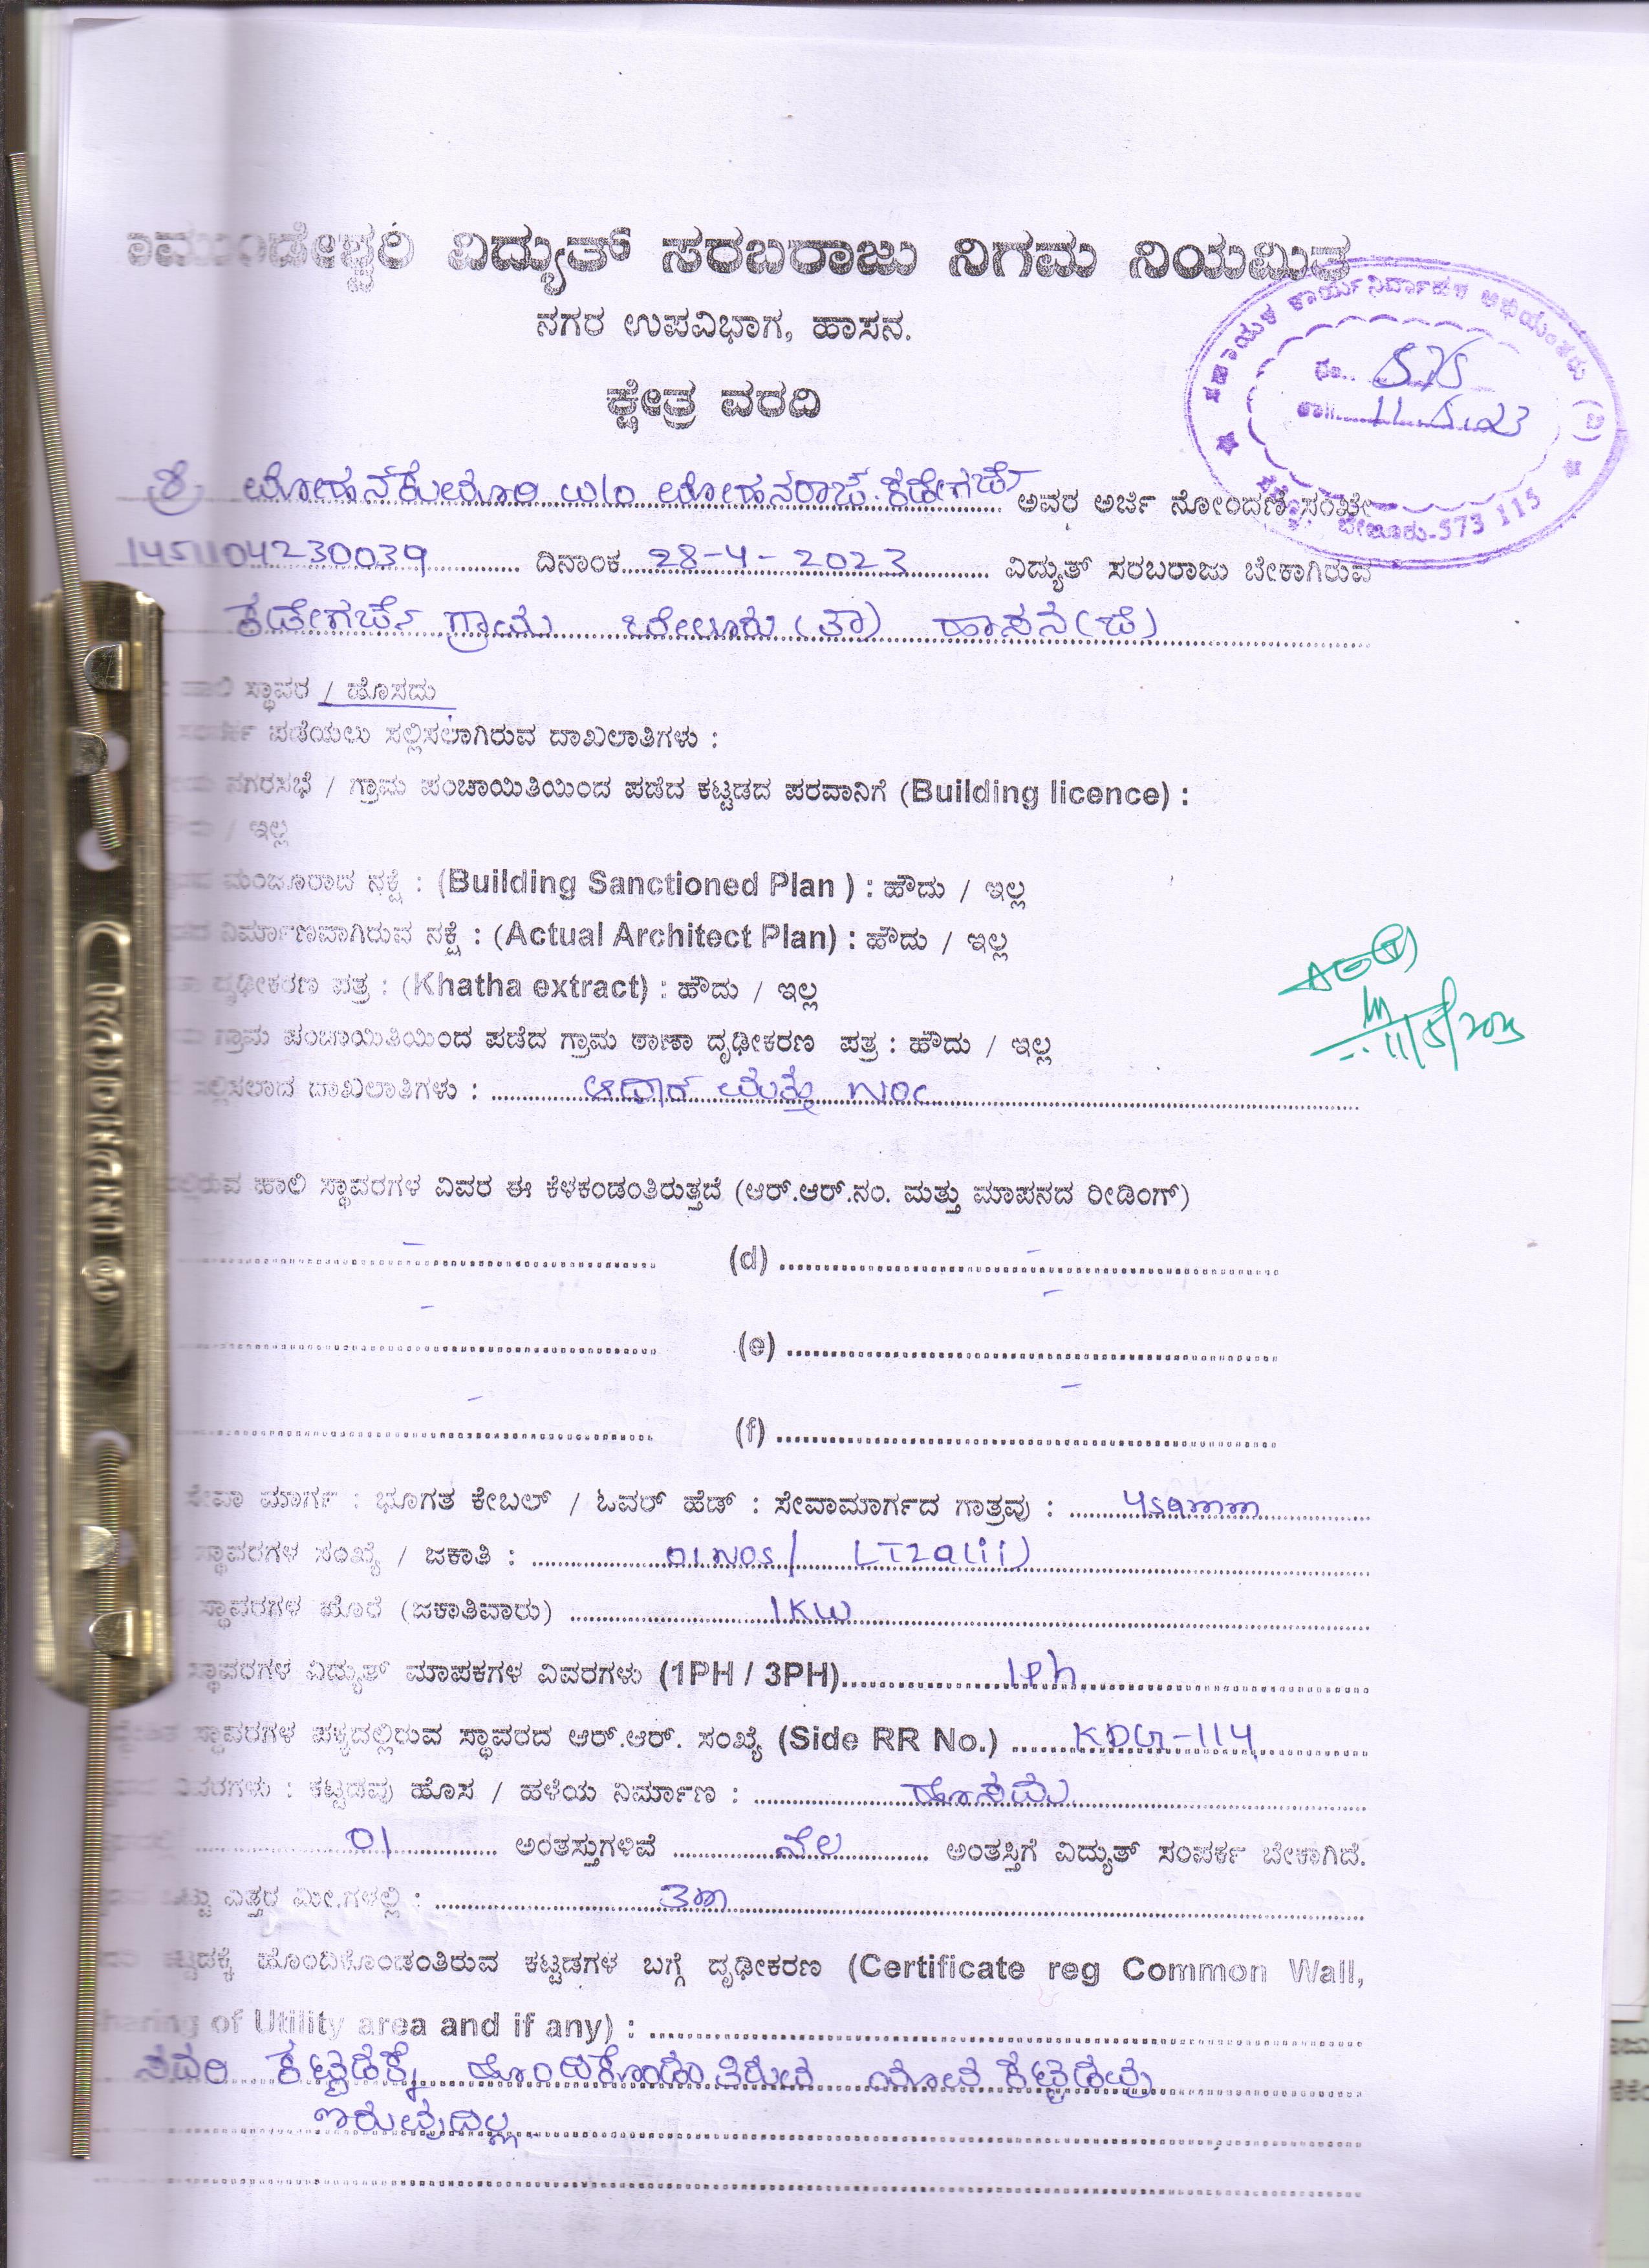 ಾಮುಂಡೇಶ್ವರಿ ವಿದ್ಯುತ್ ಸರಬರಾಜು ನಿಗಮ ನಿಯಮಿತ
ನಗರ ಉಪವಿಭಾಗ, ಹಾಸನ.
ಕ್ಷೇತ್ರ ವರದಿ
ಸಹಾಯಕ ಕಾರ್ಯನಿರ್ವಾಹಕ ಅಭಿಯಂತರರು (ವಿ)
ನಂ.. 575
ತಾ|| 11.5.23
ಬೇಲೂರು-573 115
ಶ್ರೀ ಮೋಹನಕುಮಾರಿ w/o ಮೋಹನರಾಜ್.ಕಡೇಗರ್ಜೆ ಅವರ ಅರ್ಜಿ ನೋಂದಣಿ ಸಂಖ್ಯೇ
1451104230039 ದಿನಾಂಕ 28-4-2023 ವಿದ್ಯುತ್ ಸರಬರಾಜು ಬೇಕಾಗಿರುವ
ಕಡೇಗರ್ಜೆ ಗ್ರಾಮ ಬೇಲೂರು (ತಾ) ಹಾಸನ (ಜಿ)
ಹಾಲಿ ಸ್ಥಾವರ / ಹೊಸದು
ಪಡೆಯಲು ಸಲ್ಲಿಸಲಾಗಿರುವ ದಾಖಲಾತಿಗಳು :
ನಗರಸಭೆ / ಗ್ರಾಮ ಪಂಚಾಯಿತಿಯಿಂದ ಪಡೆದ ಕಟ್ಟಡದ ಪರವಾನಿಗೆ (Building licence) :
/ ಇಲ್ಲ
ಮಂಜೂರಾದ ನಕ್ಷೆ : (Building Sanctioned Plan ) : ಹೌದು / ಇಲ್ಲ
ನಿರ್ಮಾಣವಾಗಿರುವ ನಕ್ಷೆ : (Actual Architect Plan) : ಹೌದು / ಇಲ್ಲ
ದೃಢೀಕರಣ ಪತ್ರ : (Khatha extract) : ಹೌದು / ಇಲ್ಲ
11/5/2023
ಗ್ರಾಮ ಪಂಚಾಯಿತಿಯಿಂದ ಪಡೆದ ಗ್ರಾಮ ಠಾಣಾ ದೃಢೀಕರಣ ಪತ್ರ : ಹೌದು / ಇಲ್ಲ
ಸಲ್ಲಿಸಲಾದ ದಾಖಲಾತಿಗಳು : ಆಧಾರ್ ಮತ್ತು NOC
ಹಾಲಿ ಸ್ಥಾವರಗಳ ವಿವರ ಈ ಕೆಳಕಂಡಂತಿರುತ್ತದೆ (ಆರ್.ಆರ್.ನಂ. ಮತ್ತು ಮಾಪನದ ರೀಡಿಂಗ್)
- (d) -
- (e) -
- (f) -
ಸೇವಾ ಮಾರ್ಗ : ಭೂಗತ ಕೇಬಲ್ / ಓವರ್ ಹೆಡ್ : ಸೇವಾಮಾರ್ಗದ ಗಾತ್ರವು : 4sqmm
ಸ್ಥಾವರಗಳ ಸಂಖ್ಯೆ / ಜಕಾತಿ : 01NOS/ LT2a(ii)
ಸ್ಥಾವರಗಳ ಹೊರೆ (ಜಕಾತಿವಾರು) 1KW
ಸ್ಥಾವರಗಳ ವಿದ್ಯುತ್ ಮಾಪಕಗಳ ವಿವರಗಳು (1PH / 3PH) 1Ph
ಸ್ಥಾವರಗಳ ಪಕ್ಕದಲ್ಲಿರುವ ಸ್ಥಾವರದ ಆರ್.ಆರ್. ಸಂಖ್ಯೆ (Side RR No.) KDG-114
ವಿವರಗಳು : ಕಟ್ಟಡವು ಹೊಸ / ಹಳೆಯ ನಿರ್ಮಾಣ : ಹೊಸದು
01 ಅಂತಸ್ತುಗಳಿವೆ ನೆಲ ಅಂತಸ್ತಿಗೆ ವಿದ್ಯುತ್ ಸಂಪರ್ಕ ಬೇಕಾಗಿದೆ.
ಒಟ್ಟು ಎತ್ತರ ಮೀ.ಗಳಲ್ಲಿ : 3m
ಕಟ್ಟಡಕ್ಕೆ ಹೊಂದಿಕೊಂಡಂತಿರುವ ಕಟ್ಟಡಗಳ ಬಗ್ಗೆ ದೃಢೀಕರಣ (Certificate reg Common Wall,
haring of Utility area and if any) :
ಸದರಿ ಕಟ್ಟಡಕ್ಕೆ ಹೊಂದಿಕೊಂಡಂತಿರುವ ಯಾವ ಕಟ್ಟಡವು
ಇರುವುದಿಲ್ಲ